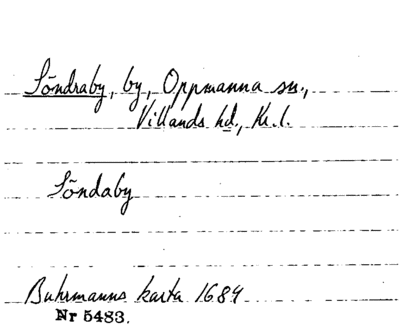 Söndraby, by, Oppmanna sn.,
Villands hd., Kr. l.
Söndaby
Buhrmanns karta 1684
Nr 5483.